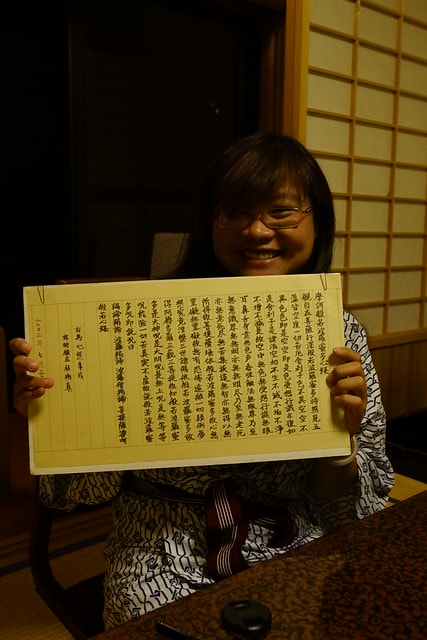 摩訶般若波羅蜜多心経
観自在菩薩行深般若波羅蜜多時照見五
蘊皆空度一切苦厄舎利子色不異空空不
異色色即是空空即是色受想行識亦復如
是舎利子是諸法空相不生不滅不垢不浄
不増不減是故空中無色無受想行識無眼
耳鼻舌身意無色声香味触法無眼界乃至
無意識界無無明亦無無明尽乃至無老死
亦無老死尽無苦集滅道無智亦無得以無
所得故菩提薩埵依般若波羅蜜多故心無
罣礙無罣礙故無有恐怖遠離一切顛倒夢
想究竟涅槃三世諸仏依般若波羅蜜多故
得阿耨多羅三藐三菩提故知般若波羅蜜
多是大神呪是大明呪是無上呪是無等等
呪能除一切苦真実不虚故説般若波羅蜜
多呪即説呪曰
羯諦羯諦 波羅羯諦 波羅僧羯諦 菩提薩婆訶
般若心経
右為 心想事成